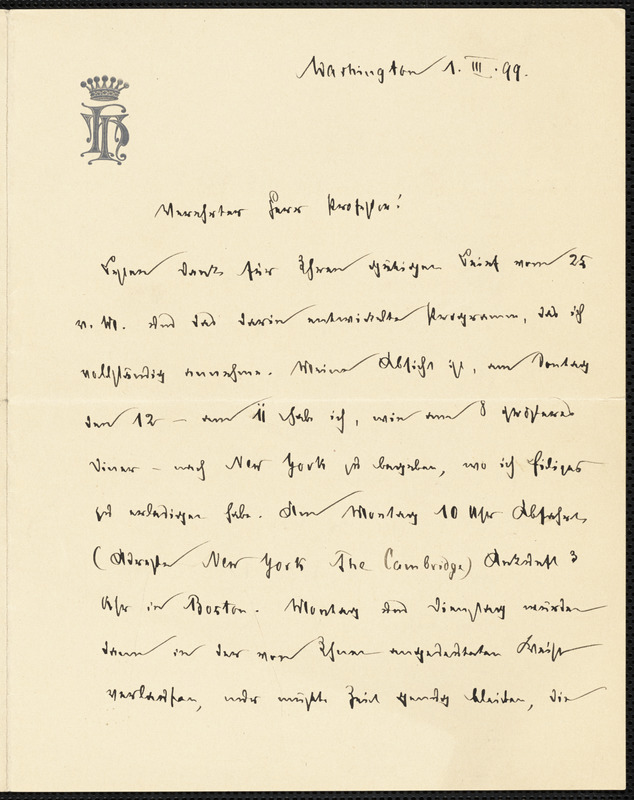 Washington 1. III. 99.
TH
Verehrter Herr Professor!
Besten Dank für Ihren gütigen Brief vom 25
v. M. und das darin entwickelte Programm, das ich
vollständig annehme. Meine Absicht ist, am Sontag
den 12 – am 11 habe ich, wie am 8 grösseres
Diner – nach New York zu begeben, wo ich Eiliges
zu erledigen habe. Am Montag 10 Uhr Abfahrt
(Adresse New York The Cambridge) Ankunft 3
Uhr in Boston. Montag und Dienstag würden
dann in der von Ihnen angedeuteten Weise
verlaufen, nur müsste Zeit genug bleiben, die